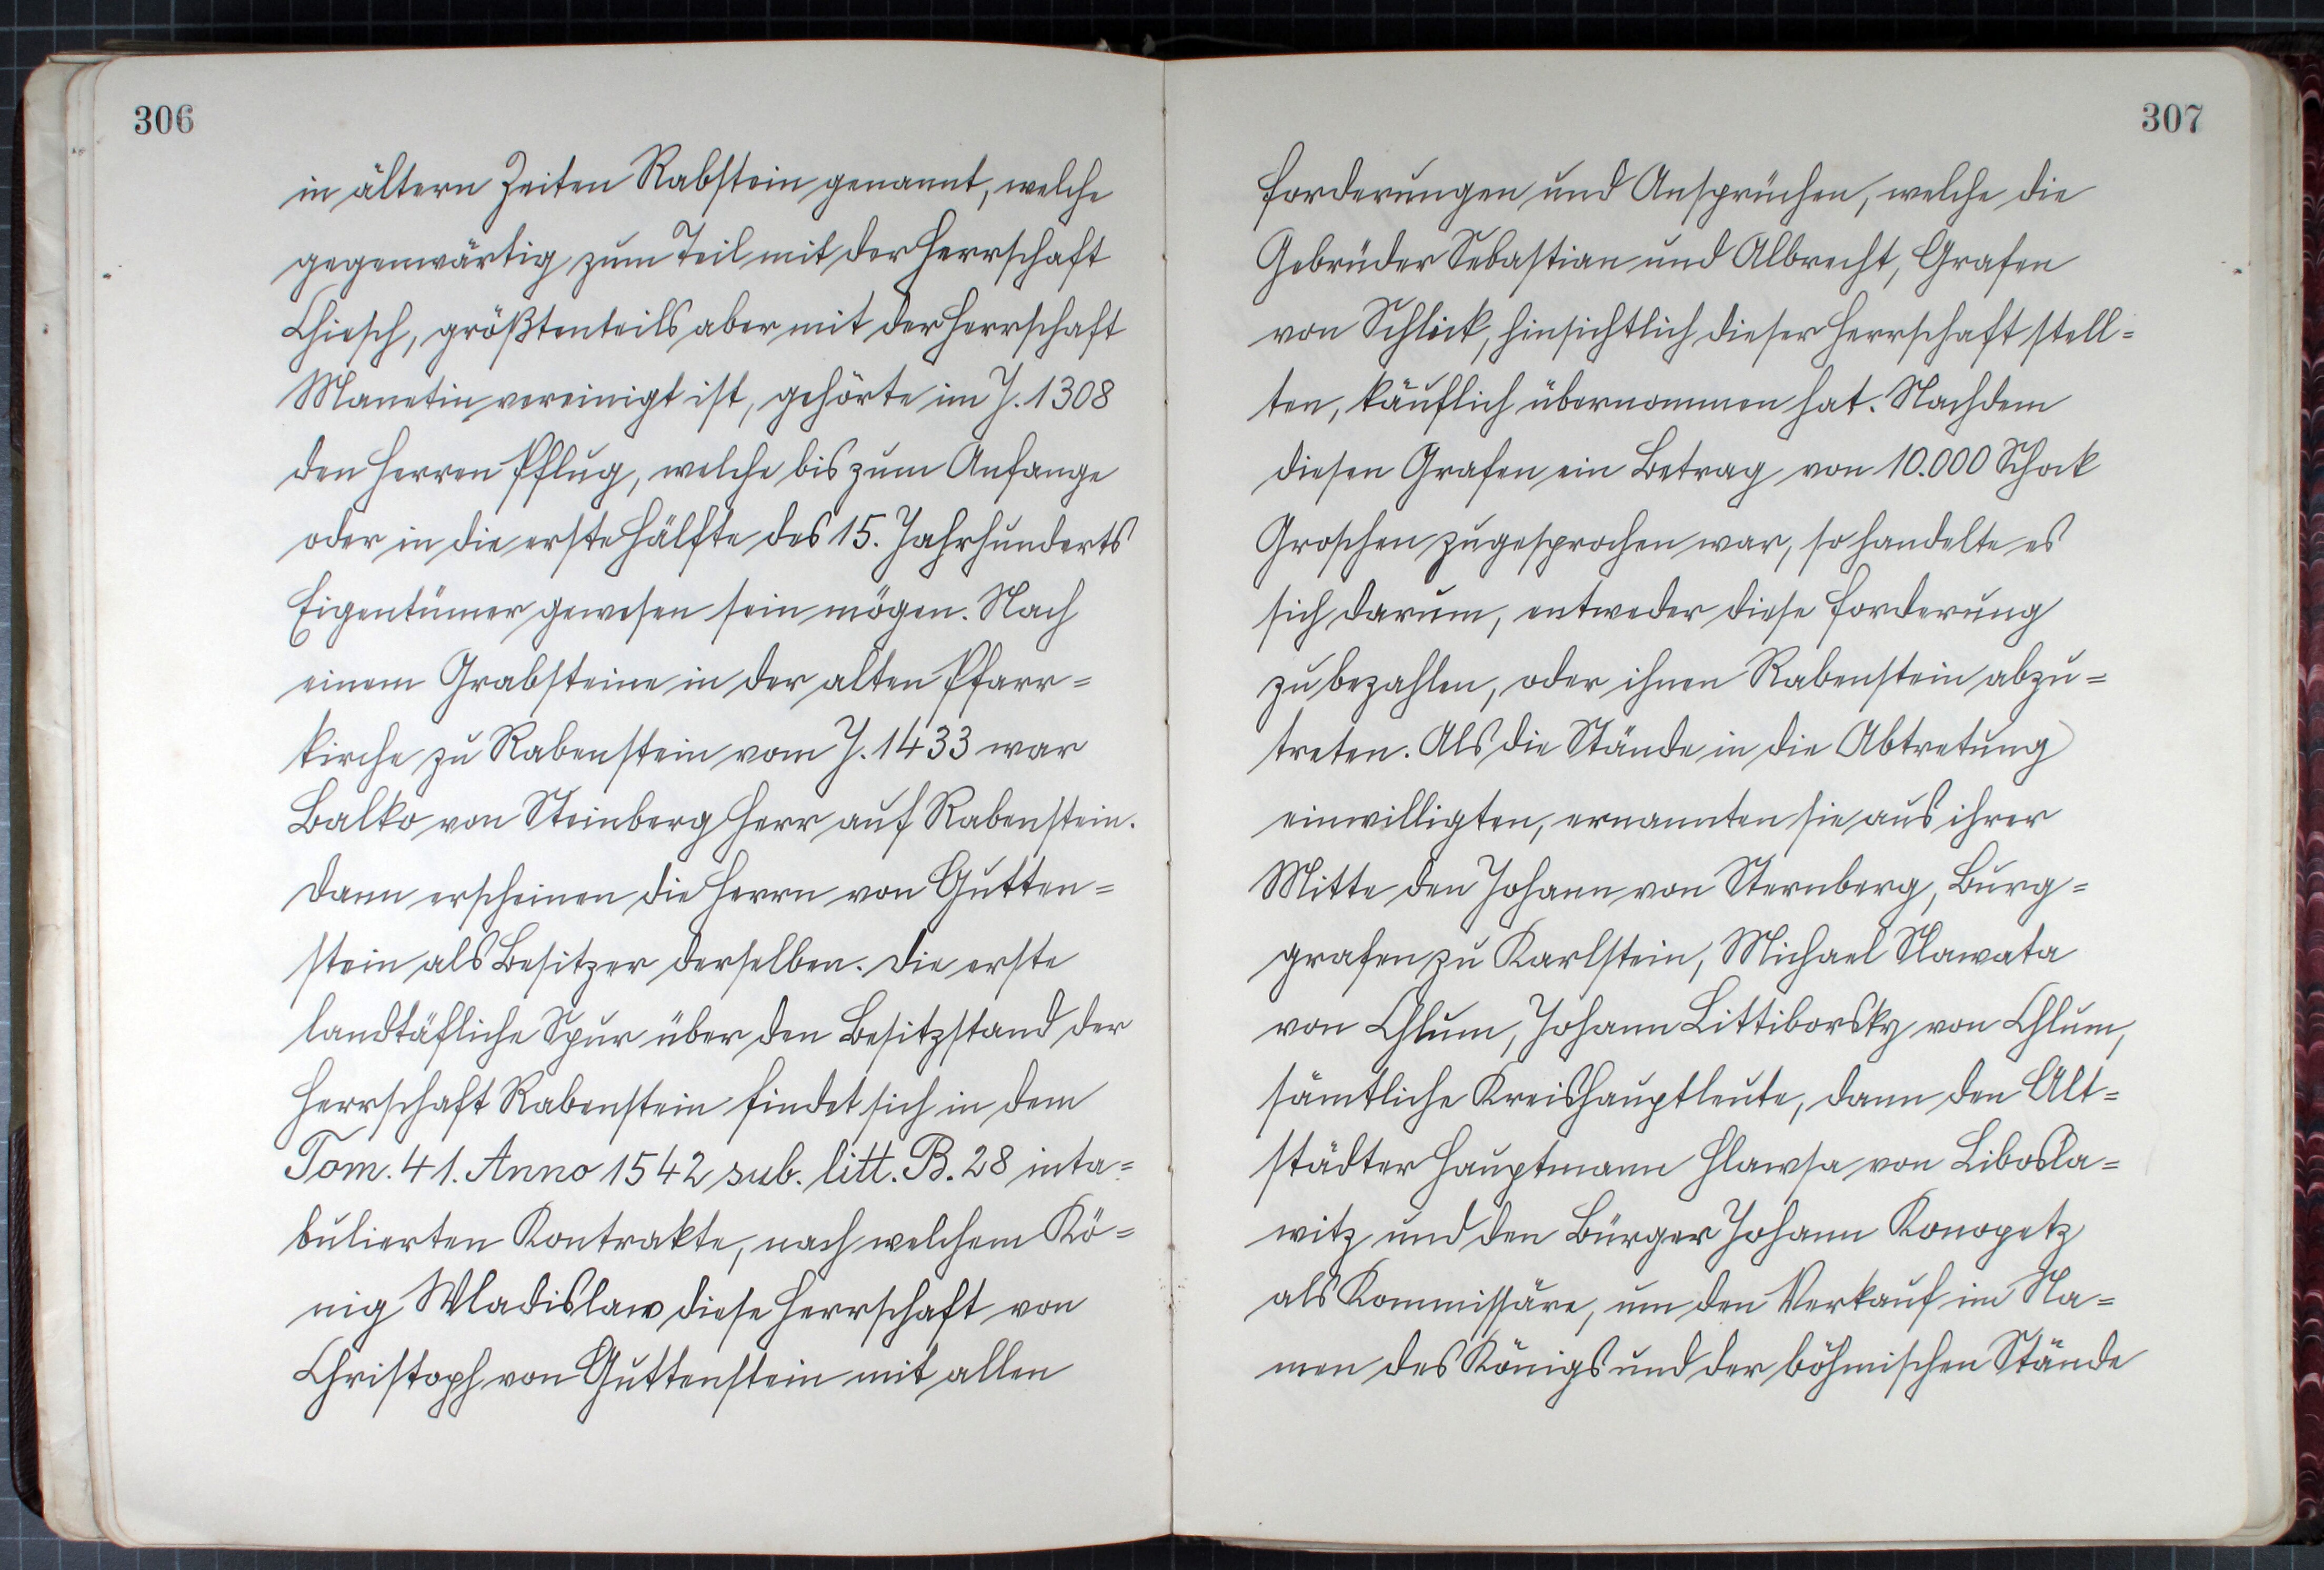 306
in ältern Zeiten Rabstein genannt, welche
gegenwärtig zum Teil mit der Herrschaft
Chiesch, größtenteils aber mit der Herrschaft
Manetin vereinigt ist, gehörte im J. 1308
den Herren Pflug, welche bis zum Anfange
oder in die erste Hälfte des 15. Jahrhunderts
Eigentümer gewesen sein mögen. Nach
einem Grabsteine in der alten Pfarr=
kirche zu Rabenstein vom J. 1433 war
Balko von Steinberg Herr auf Rabenstein.
Dann erscheinen die Herrn von Gutten=
stein als Besitzer derselben. Die erste
landtäfliche Spur über den Besitzstand der
Herrschaft Rabenstein findet sich in dem
Tom. 41. Anno 1542 sub. litt. B. 28 inta=
bulierten Kontrakte, nach welchem Kö=
nig Wladislaw diese Herrschaft von
Christoph von Guttenstein mit allen
307
Forderungen und Ansprüchen, welche die
Gebrüder Sebastian und Albrecht, Grafen
von Schlick, hinsichtlich dieser Herrschaft stell=
ten, käuflich übernommen hat. Nachdem
diesen Grafen ein Betrag von 10.000 Schock
Groschen zugesprochen war, so handelte es
sich darum, entweder diese Forderung
zu bezahlen, oder ihnen Rabenstein abzu=
treten. Als die Stände in die Abtretung
einwilligten, ernannten sie aus ihrer
Mitte den Johann von Sternberg, Burg=
grafen zu Karlstein, Michael Slawata
von Chlum, Johann Littiborsky von Chlum,
sämtliche Kreishauptleute, dann den Alt=
städter Hauptmann Hlawsa von Libosla=
witz und den Bürger Johann Konopetz
als Kommissäre, um den Verkauf im Na=
men des Königs und der böhmischen Stände